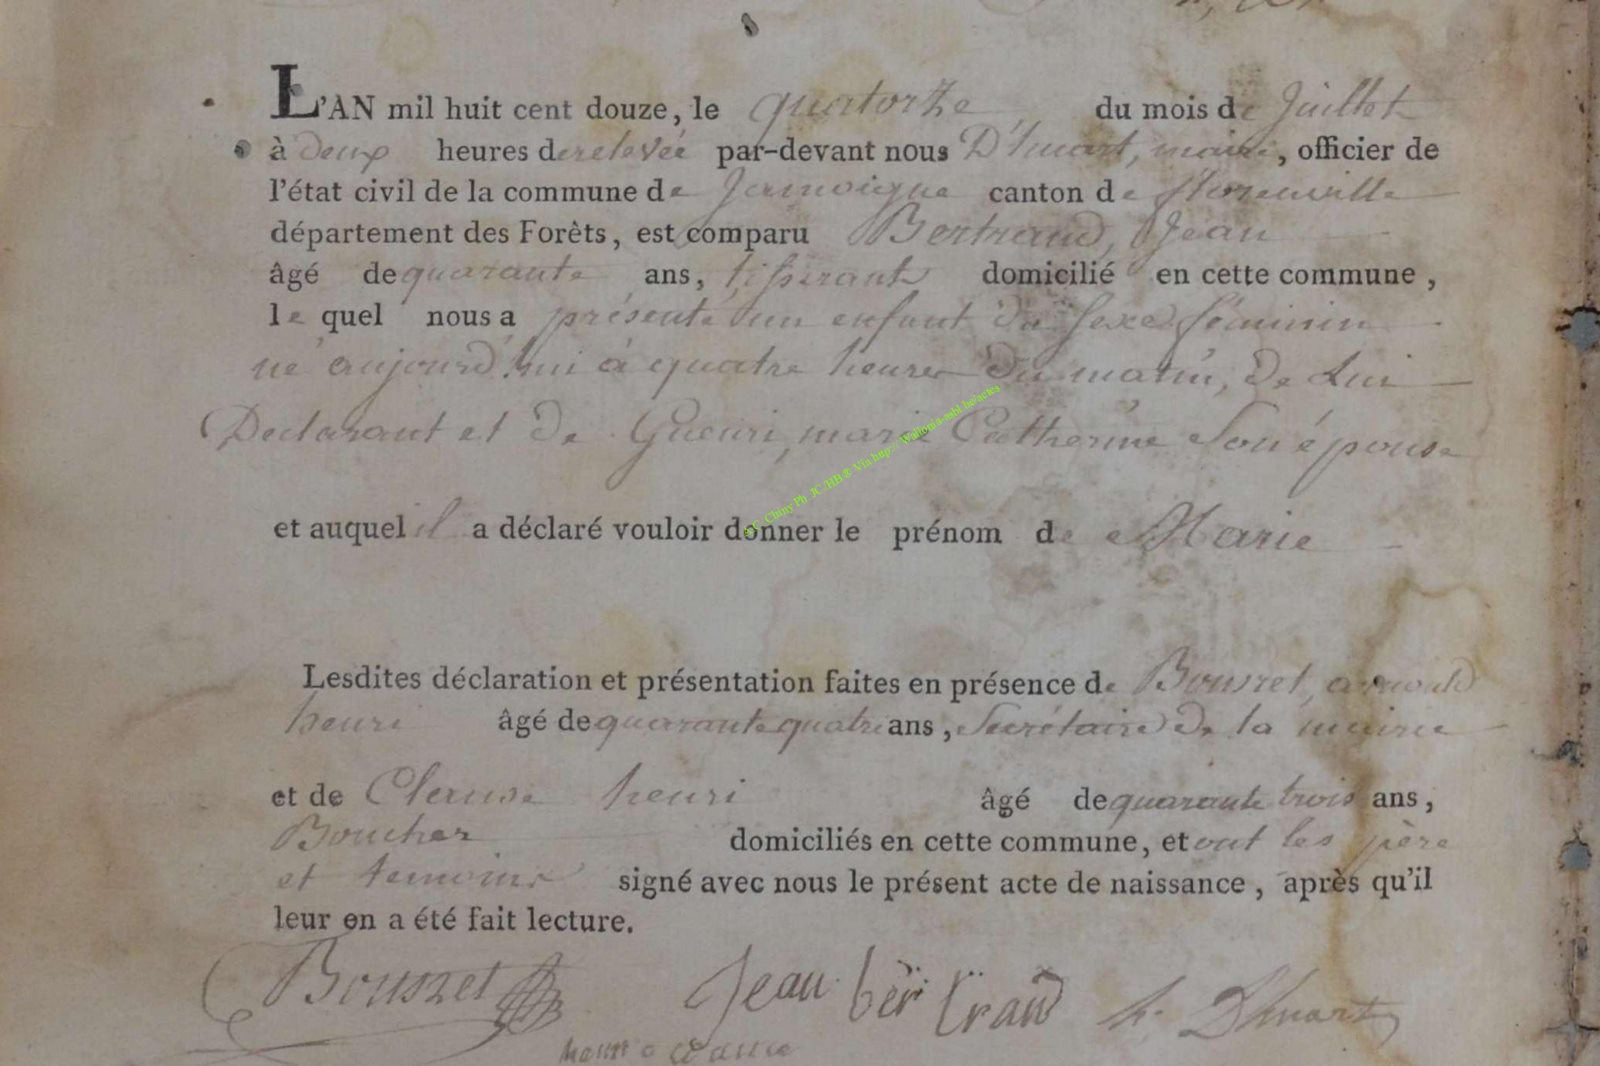 L'AN mil huit cent douze, le quatorze du mois de Juillet
à deux heures de relevée par-devant nous D'huart, maire, officier de
l'état civil de la commune de Jamoigne canton de florenville
département des Forêts, est comparu Bertrand, Jean
âgé de quarante ans, tisserant domicilié en cette commune,
le quel nous a présenté un enfant du sexe féminin
né aujourd'hui à quatre heures du matin, de Lui
Declarant et de marie Catherine Son épouse
et auquel il a déclaré vouloir donner le prénom de Marie
Lesdites déclaration et présentation faites en présence de Bousret, arnould
henri âgé de quarante quatre ans, Secrétaire de la mairie
et de Clause henri âgé de quarante trois ans,
Boucher domiciliés en cette commune, et ont les père
et temoins signé avec nous le présent acte de naissance, après qu'il
leur en a été fait lecture.
Bousret Jean bertrand h. D'huart
henri